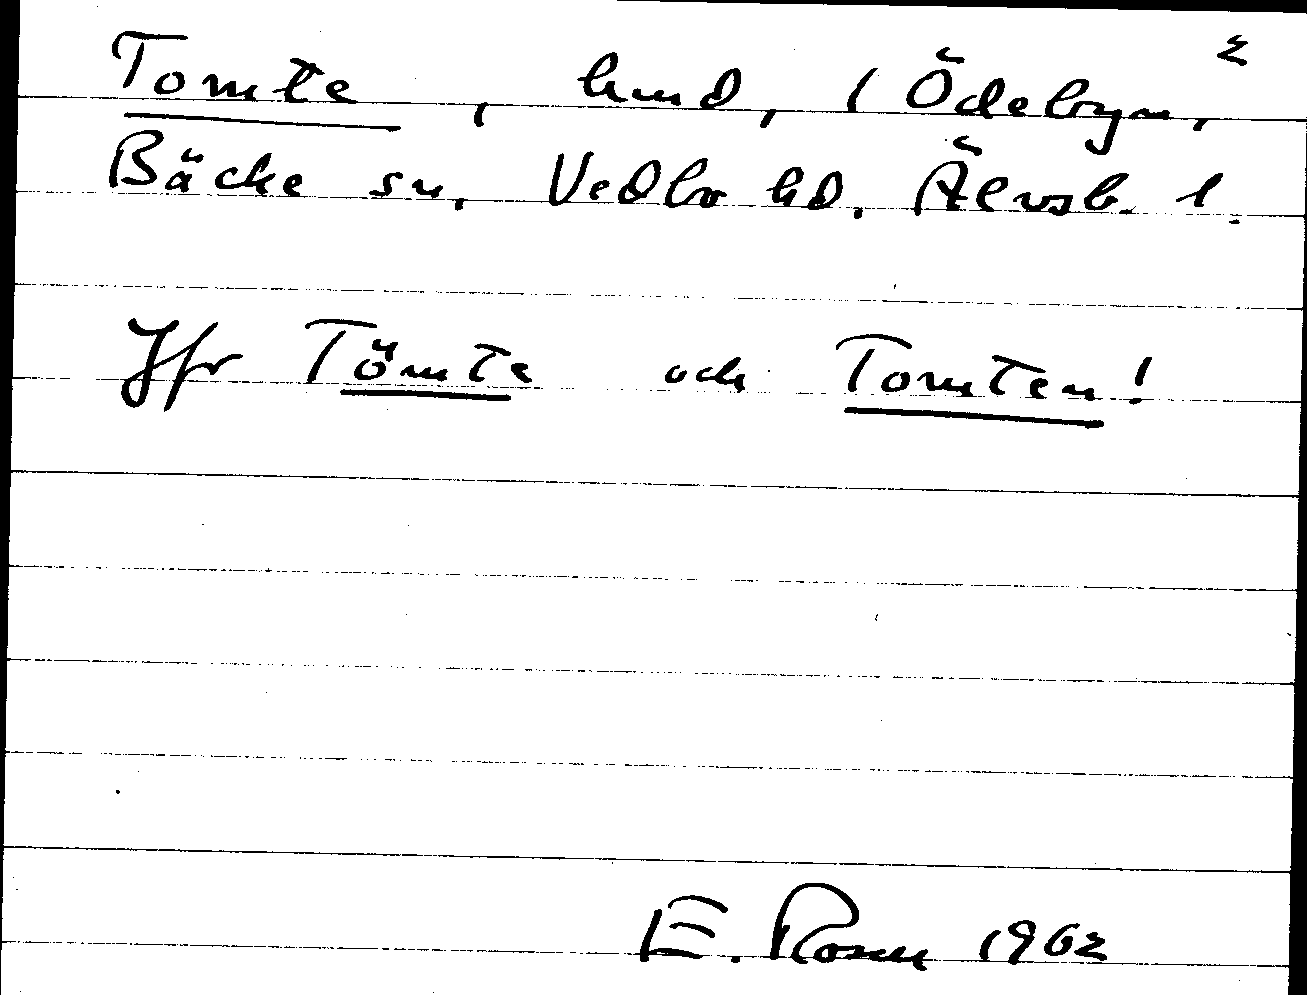 2
Tomte, hmd, 1 Ödebyn,
Bäcke sn, Vedbo hd. Älvsb. l.
Jfr Tömte och Tomten!
E. Rosen 1962